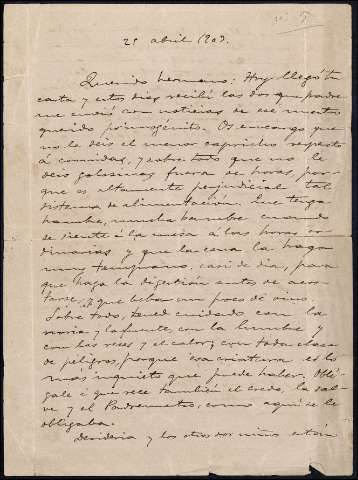 25 abril 1903.
Querido hermano: Hoy llegó tu
carta y estos días recibí las dos que padre
me envió con noticias de ese nuestro
querido primogénito. Os encargo que
no le deis el menor capricho respecto
á comidas, y sobre todo que no le
deis golosinas fuera de horas, por-
que es altamente perjudicial tal
sistema de alimentación. Que tenga
hambre, mucha hambre cuando
se siente á la mesa á las horas or-
dinarias y que la cena la haga
muy temprano, casi de día, para
que haga la digestión antes de acos-
tarse, y que beba un poco de vino.
Sobre todo, tened cuidado con la
noria y la fuente, con la lumbre y
con las reses y el calor; con toda clase
de peligros, porque esa criatura es lo
más inquieto que puede haber. Oblí-
gale á que rece también el credo, la sal-
ve y el Padrenuestro, como aquí se le
obligaba.
Desideria y los otros dos niños están